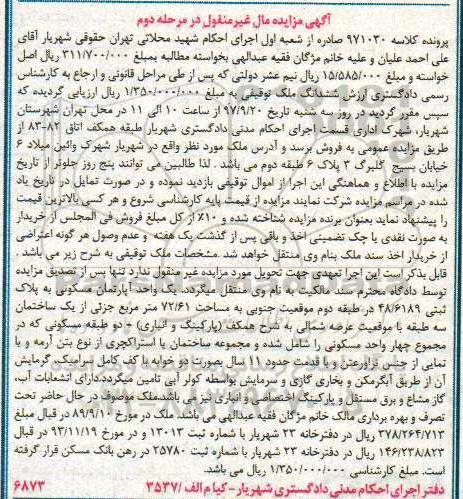 آگهی مزایده مال غیرمنقول در مرحله دوم
پرونده کلاسه ۹۷۱۰۳۰ صادره از شعبه اول اجرای احکام شهید محلاتی تهران حقوقی شهریار آقای
علی احمد علیان و علیه خانم مژگان فقیه عبدالهی بخواسته مطالبه بمبلغ ۳۱۱/۷۰۰/۰۰۰ ریال اصل
خواسته و مبلغ ۱۵/۵۸۵/۰۰۰ ریال نیم عشر دولتی که پس از طی مراحل قانونی و ارجاع به کارشناس
رسمی دادگستری ارزش ششدانگ ملک توقیفی به مبلغ ۱/۳۵۰/۰۰۰/۰۰۰ ریال ارزیابی گردیده که
سپس مقرر گردید در روز سه شنبه تاریخ ۹۷/۹/۲۰ از ساعت ۱۰ الی ۱۱ در محل تهران شهرستان
شهریار، شهرک اداری قسمت اجرای احکام مدنی دادگستری شهریار طبقه همکف اتاق ۸۲-۸۳ از
طریق مزایده عمومی به فروش برسد و آدرس ملک مورد نظر واقع در شهریار شهرک وائین میلاد ۶
خیابان بسیج گلبرگ ۳ پلاک ۶ طبقه دوم می باشد . لذا طالبین می توانند پنج روز جلوتر از تاریخ
مزایده با اطلاع و هماهنگی این اجرا از اموال توقیفی بازدید نموده و در صورت تمایل در تاریخ یاد
شده در مراسم مزایده شرکت نمایند مزایده از قیمت پایه کارشناسی شروع و هر کسی بالاترین قیمت
را پیشنهاد نماید بعنوان برنده مزایده شناخته شده و ۱۰٪ از کل مبلغ فروش فی المجلس از خریدار
به صورت نقدی یا چک تضمینی اخذ و باقی پس از گذشت یک هفته و عدم وصول هر گونه اعتراضی
از خریدار اخذ سند ملک بنام وی منتقل خواهد شد. مشخصات ملک توقیفی به شرح زیر می باشد .
قابل بذکر است این اجرا تعهدی جهت تحویل مورد مزایده غیر منقول ندارد تنها پس از تصدیق مزایده
توسط دادگاه محترم سند مالکیت به نام وی منتقل میگردد. یک واحد آپارتمان مسکونی به پلاک
ثبتی ۴۸/۶۱۸۹ در طبقه دوم موقعیت جنوبی به مساحت ۷۲/۶۱ متر مربع جزئی از یک ساختمان
سه طبقه با موقعیت عرضه شمالی به شرح همکف (پارکینگ و انباری) - دو طبقه مسکونی که در
مجموع چهار واحد مسکونی را شامل شده و مجموعه ساختمان با استراکچری از نوع بتن آرمه و با
نمایی از جنس تراورتن و با قدمت حدود ۱۱ سال بصورت دو خوابه با کف کامل سرامیک، گرمایش
آن از طریق آبگرمکن و بخاری گازی و سرمایش بواسطه کولر آبی تامین میگردد.دارای انشعابات آب،
گاز مشاع و برق مستقل و پارکینگ اختصاصی و انباری نیز می باشد.ملک موصوف در حال حاضر تحت
تصرف و بهره برداری مالک خانم مژگان فقیه عبدالهی می باشد. ملک در مورخ ۸۹/۹/۱۰ در قبال مبلغ
۳۷۸/۲۶۴/۷۱۳ ریال در دفترخانه ۲۳ شهریار با شماره ثبت ۱۳۰۱۳ و در مورخ ۹۳/۱۱/۱۹ در قبال
۱۴۶/۲۳۸/۸۲۳ ریال در دفترخانه ۲۳ شهریار با شماره ثبت ۲۵۷۸۰ در رهن بانک مسکن قرار گرفته
است. مبلغ کارشناسی ۱/۳۵۰/۰۰۰/۰۰۰ ریال می باشد.
دفتر اجرای احکام مدنی دادگستری شهریار - کیا م الف /۳۵۳۷ ۶۸۷۳